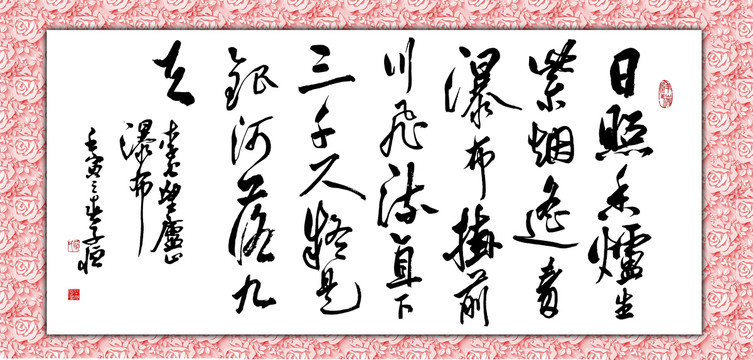 日照香爐生
紫烟遙看
瀑布掛前
川飛流直下
三千尺疑是
銀河落九
天
李白望廬山
瀑布
壬寅之春子恒